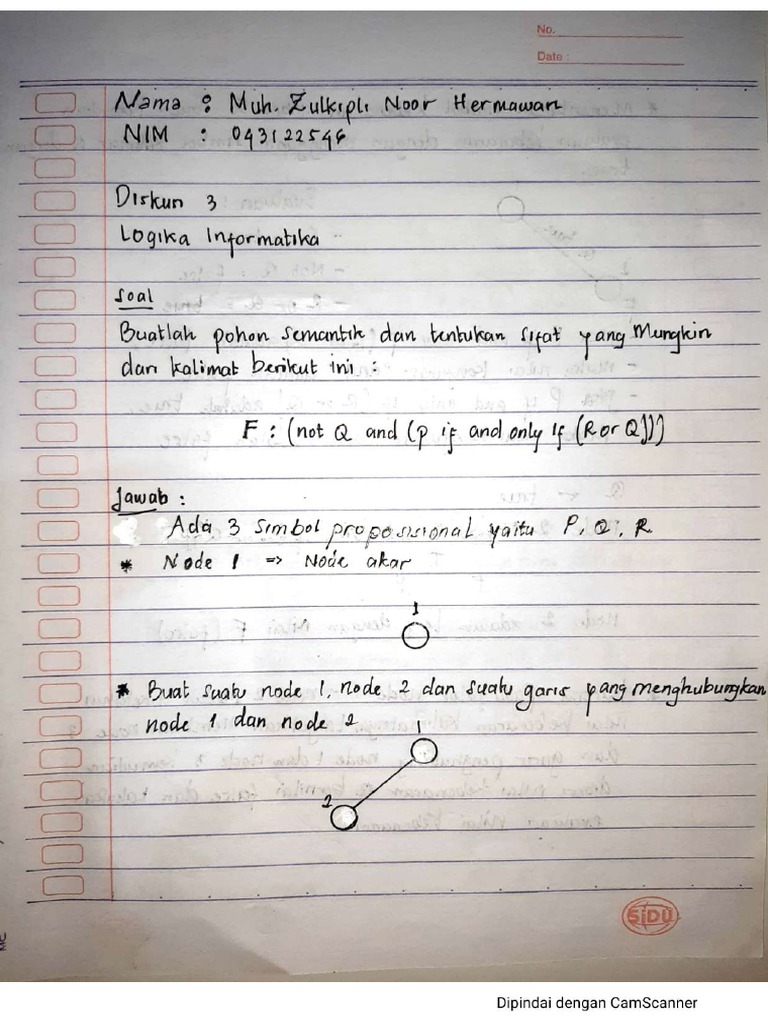 No.
Date :
Nama : Muh. Zulkipli Noor Hermawan
NIM : 043122546
Diskusi 3
Logika Informatika
Soal
Buatlah pohon semantik dan tentukan sifat yang Mungkin
dari kalimat berikut ini :
F : (not Q and (p if and only if (R or Q)))
Jawab :
Ada 3 simbol proposisional yaitu P, Q, R
* Node 1 => Node akar
1
* Buat suatu node 1, node 2 dan suatu garis yang menghubungkan
node 1 dan node 2
1
2
SiDU
Dipindai dengan CamScanner